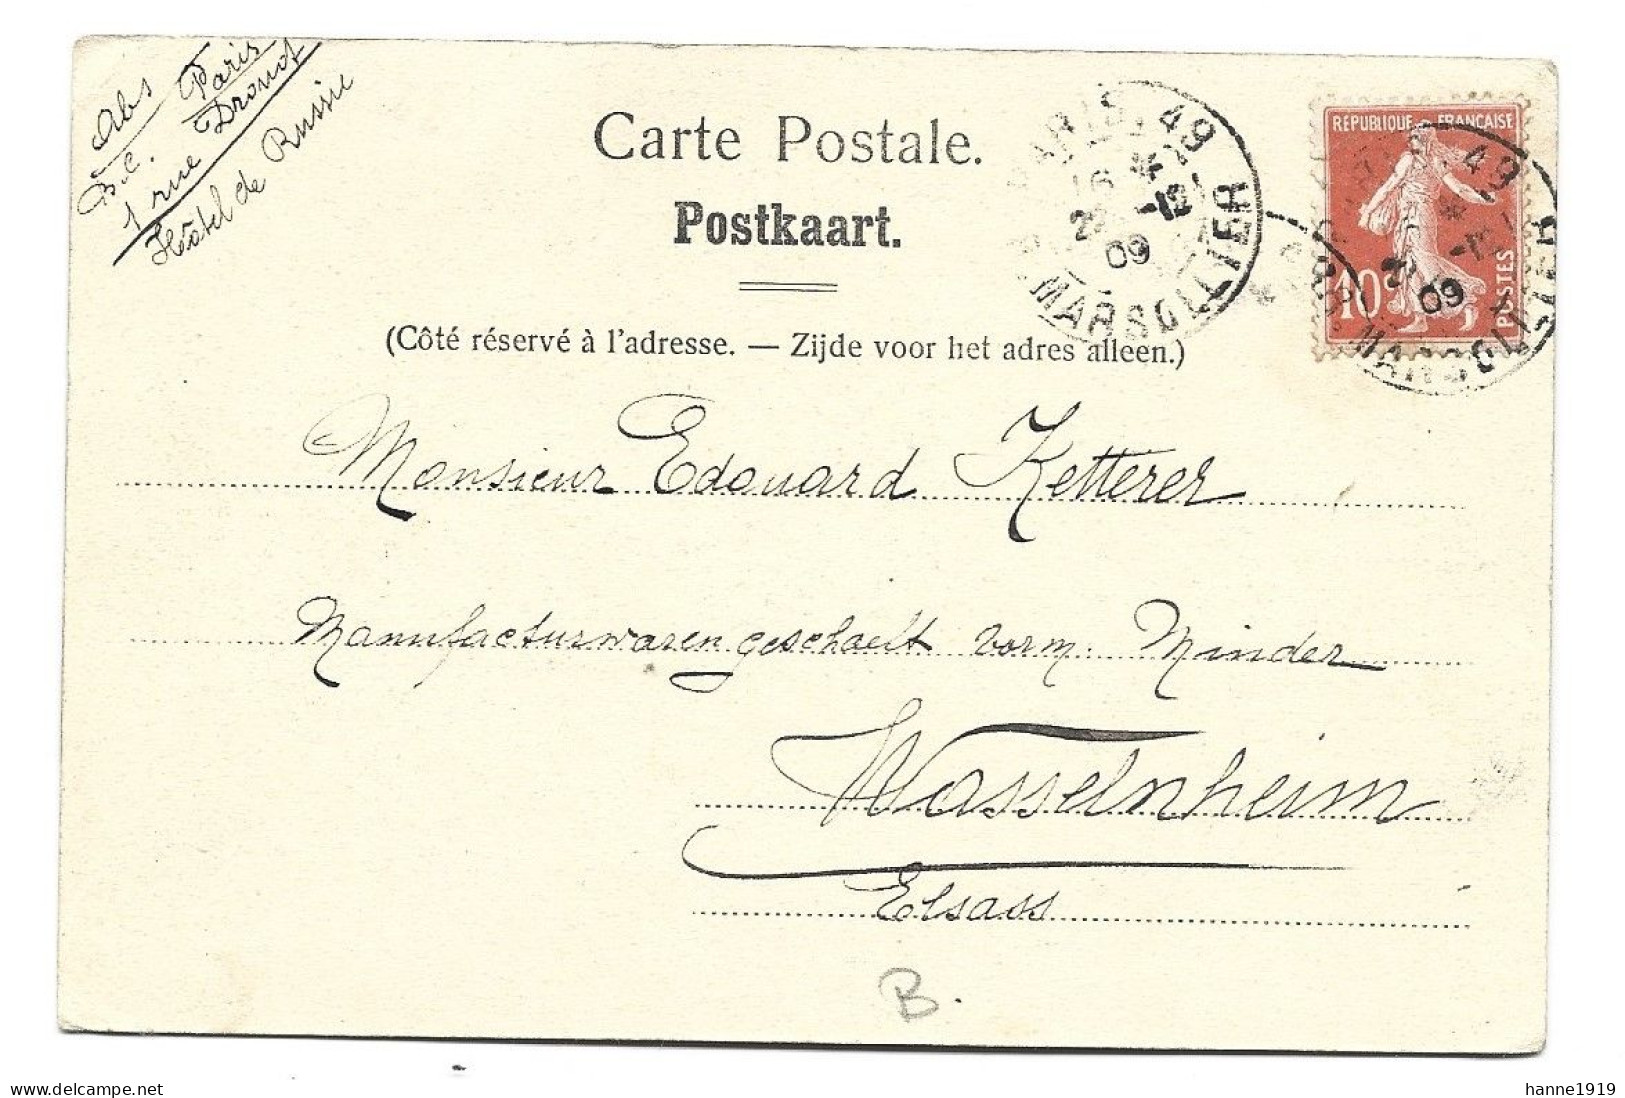 Abs
B.C. Paris
1 rue Drouot
Hôtel de Russie
Carte Postale.
Postkaart.
(Côté réservé à l'adresse. — Zijde voor het adres alleen.)
PARIS. 49
-12
09
R. MARSOLLIER
RÉPUBLIQUE FRANÇAISE
10c
POSTES
49
09
MARSOLLIER
Monsieur Edouard Ketterer
Manufacturwarengeschaeft vorm. Minder
Wasselnheim
Elsass
B.
delcampe.net
hanne1919